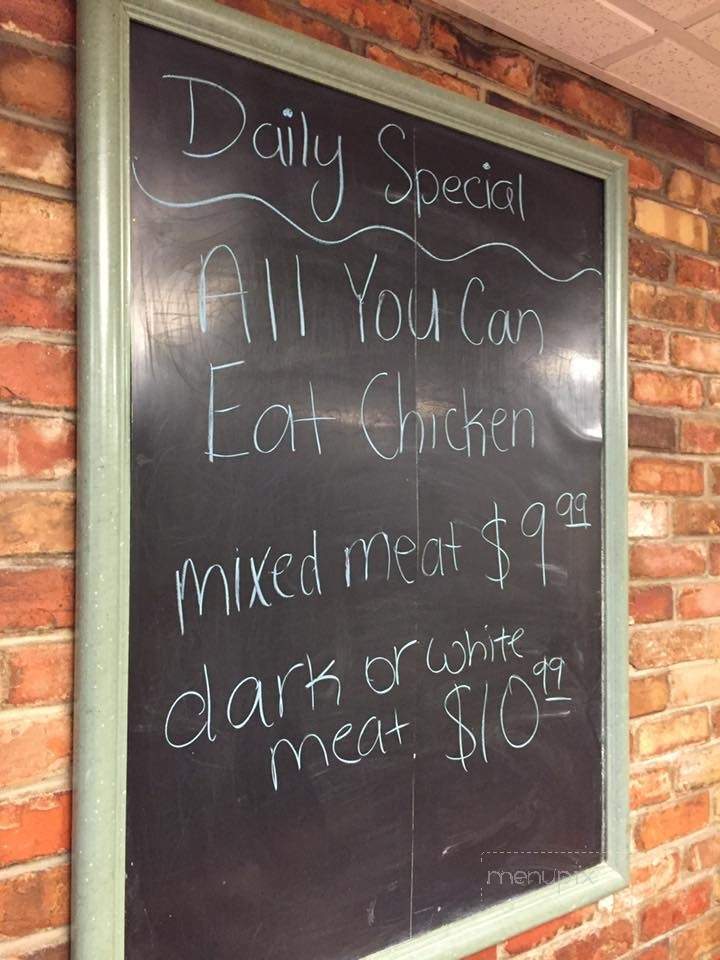 Daily Special
All You Can
Eat Chicken
mixed meat $9.99
dark or white
meat $10.99
menupix